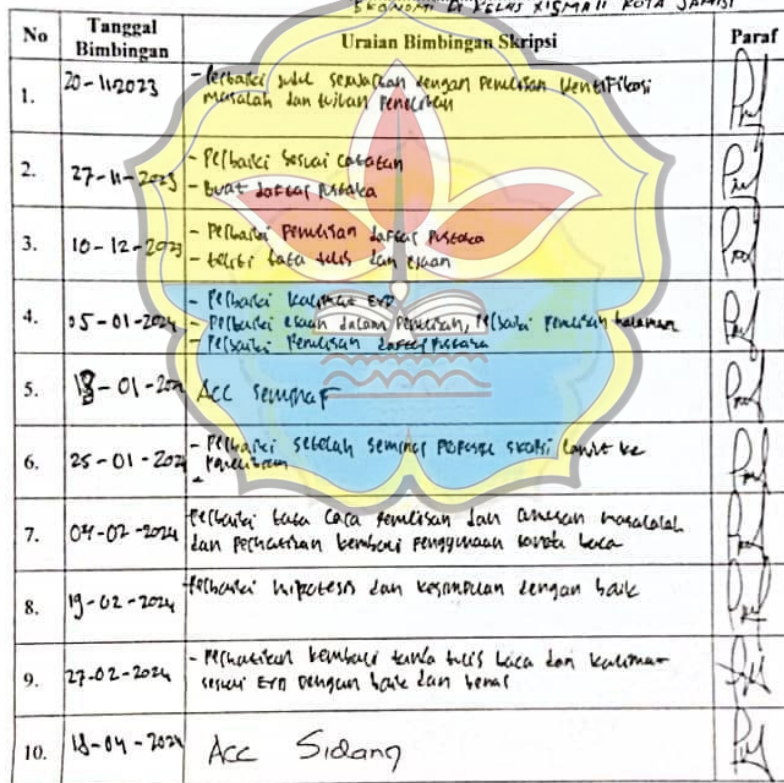 EKONOMI Di KELAS XI SMA 11 KOTA JAMBI
No
Tanggal Bimbingan
Uraian Bimbingan Skripsi
Paraf
1.
20-11-2023
- Perbaiki judul sesuaikan dengan Penulisan identifikasi
masalah dan tujuan Penelitian
2.
27-11-2023
- Perbaiki sesuai catatan
- Buat daftar Pustaka
3.
10-12-2023
- Perbaiki Penulisan daftar Pustaka
- teliti tata tulis dan ejaan
4.
05-01-2024
- Perbaiki kalimat EYD
- Perbaiki ejaan dalam Penulisan, Perbaiki Penulisan halaman
- Perbaiki Penulisan daftar Pustaka
5.
18-01-2024
ACC Seminar
6.
25-01-2024
- Perbaiki setelah seminar Proposal skripsi lanjut ke
Penelitian
-
7.
04-02-2024
Perbaiki tata cara Penulisan dan
dan Perhatikan kembali Penggunaan tanda baca
8.
19-02-2024
- Perbaiki hipotesis dan kesimpulan dengan baik
9.
27-02-2024
- Perhatikan kembali tanda tulis baca dan kalimat
sesuai EYD Dengan baik dan benar
10.
18-04-2024
Acc Sidang